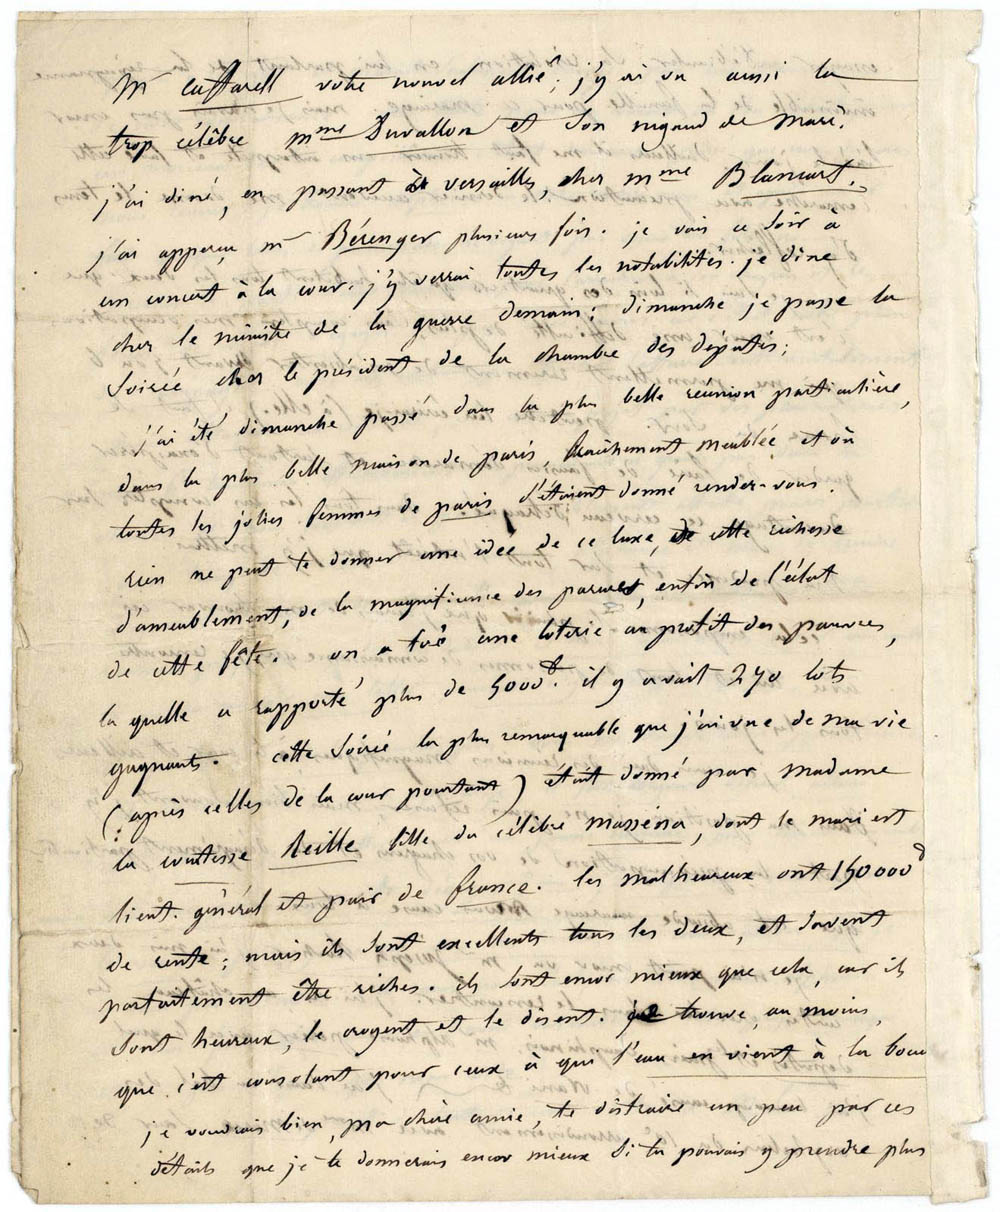 Mr Caffarell votre nouvel allié; j'y ai vu aussi la
trop célèbre mme Duvallon et son nigaud de mari.
j'ai diné, en passant à versailles, cher mme Blancart.
j'ai apperçu mr Bérenger plusieurs fois. je vais ce soir à
un concert à la cour. j'y verrai toutes les notabilités. je dîne
cher le ministre de la guerre demain; dimanche je passe la
soirée cher le président de la chambre des députés;
j'ai été dimanche passé dans la plus belle réunion particulière,
dans la plus belle maison de paris, fraîchement meublée et où
toutes les jolies femmes de paris s'étoient donné rendez-vous.
rien ne peut te donner une idée de ce luxe, de cette richesse
d'ameublement, de la magnificence des parures, enfin de l'éclat
de cette fête. on a tiré une loterie au profit des pauvres,
la quelle a rapporté plus de 5000 f. il y avait 270 lots
gagnants. cette soirée la plus remarquable que j'ai vue de ma vie
(après celles de la cour pourtant) était donné par madame
la comtesse Reille fille du célèbre masséna, dont le mari est
lieut. général et pair de france. les malheureux ont 150000 f
de rente; mais ils sont excellents tous les deux, et savent
parfaitement être riches. ils sont encor mieux que cela, car ils
sont heureux, le croyent et le disent. je trouve, au moins,
que c'est consolant pour ceux à qui l'eau en vient à la bouc
je voudrais bien, ma chère amie, te distraire un peu par ces
détails que je te donnerais encor mieux si tu pouvais y prendre plus